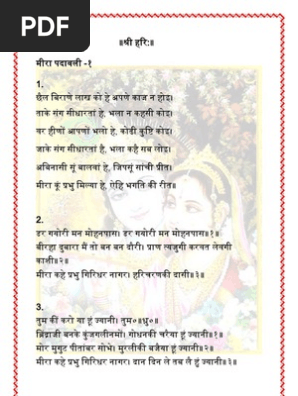 PDF
॥श्री हरि:॥
मीरा पदावली -१
1.
छैल बिराणे लाख को हे अपणे काज न होइ।
ताके संग सीधारतां हे, भला न कहसी कोइ।
वर हीणों आपणों भलो हे, कोढी कुष्टि कोइ।
जाके संग सीधारतां है, भला कहै सब लोइ।
अबिनासी सूं बालवां हे, जिपसूं सांची प्रीत।
मीरा कूं प्रभु मिल्या हे, ऐहि भगति की रीत॥
2.
डर गयोरी मन मोहनपास। डर गयोरी मन मोहनपास॥१॥
बीरहा दुबारा मैं तो बन बन दौरी। प्राण त्यजुगी करवत लेवगी
काशी॥२॥
मीरा कहे प्रभु गिरिधर नागर। हरिचरणकी दासी॥३॥
3.
तुम कीं करो या हूं ज्यानी। तुम०॥ध्रु०॥
ब्रिंद्राजी बनके कुंजगलीनमों। गोधनकी चरैया हूं ज्यानी॥१॥
मोर मुगुट पीतांबर सोभे। मुरलीकी बजैया हूं ज्यानी॥२॥
मीरा कहे प्रभु गिरिधर नागर। दान दिन ले तब लै हूं ज्यानी॥३॥